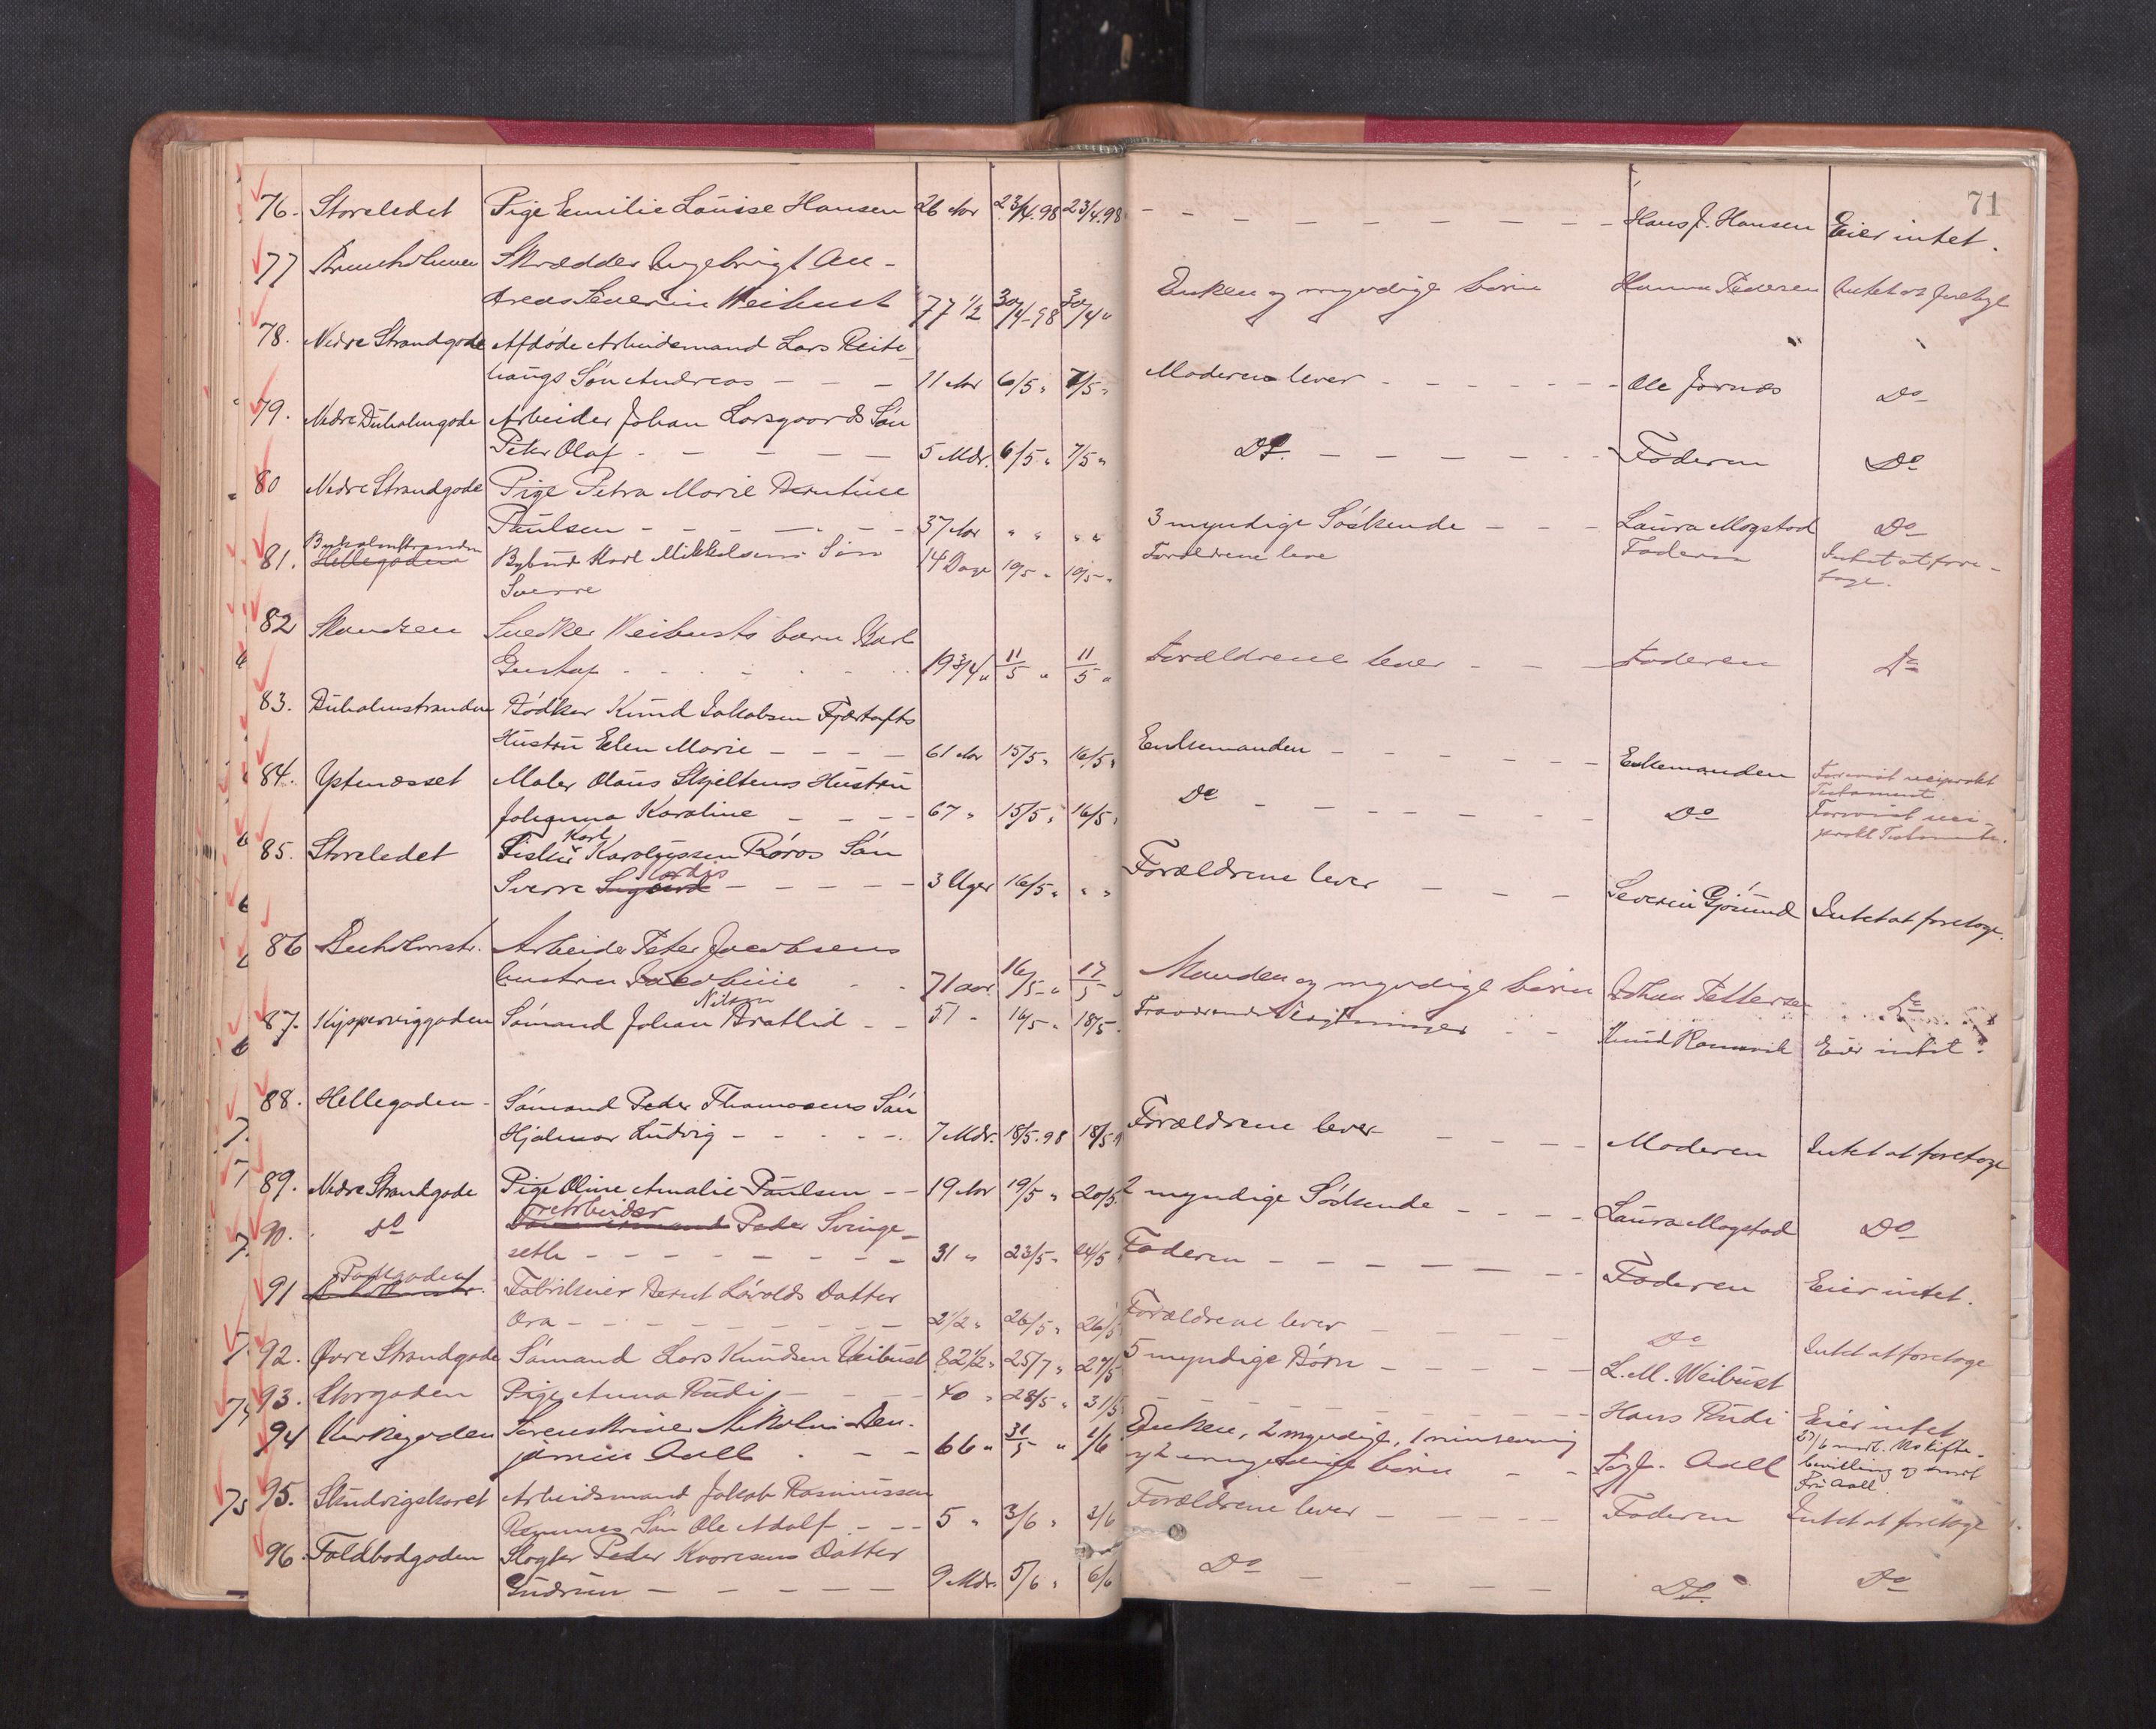 71
76. Storeledet Pige Emilie Louise Hansen 26 Aar 23/4.98 23/4.98 - - - - - - - Hans J. Hansen Eier intet.
77 Skrædder Ingebrigt An-
dreas Severin Weibust 77 1/2 30/4-98 30/4 " Enken og myndige børn Hanna Pedersen Intet at foretage
78. Nedre Strandgade Afdøde Arbeidsmand Lars Reite-
haugs Søn Andreas - - - 11 Aar 6/5 " 7/5 " Moderen lever - - - - - - Ole Jornæs Do
79. Nedre Buholmgade Arbeider Johan Korsgaards Søn
Peter Olaf - - - - - 5 Mdr. 6/5 " 7/5 " Do. - - - - - - Faderen Do
80 Nedre Strandgade Pige Petra Marie Berntine
Paulsen - - - - - - 37 Aar " " " " 3 myndige Søskende - - - Laura Mogstad Do
Buholmstranden
81. Hellegaden Bybud Karl Mikkelsens Søn 14 Dage 10/5 " 10/5 " Forældrene leve Faderen Intet at fore-
Sverre tage.
82 Skandsen Snedker Weibusts barn Karl
Gustaf - - - - - 19 3/4 " 11/5 " 11/5 " Forældrene lever - - Faderen Do
83. Buholmstranden Bødker Knud Jakobsen Fjærtofts
Hustru Elen Marie - - - - 61 Aar 15/5 " 16/5 " Enkemanden - - - - - Enkemanden Forevist reciprokt
Testament.
84. Ystenæsset Maler Olaus Skjeltens Hustru
Johanna Karoline - - - 67 " 15/5 " 16/5 " Do - - - - - - Do Forevist reci-
prokt Testamente.
Karl
85. Storeledet Fisker Karolussen Røros Søn
Hordis
Sverre Sigurd - - - - - 3 Uger 16/5 " " " Forældrene lever - - - Severin Gjøsund Intet at foretage.
86 Buholmstr. Arbeider Peter Jacobsens
hustru Jacobine - - 71 aar 16/5 - " 17/5 " Manden og myndige børn Johan Pettersen Do
Nilsen
87. Kipperviggaden Sømand Johan Bratlid - - 51 " 16/5 " 18/5 " Fraværende Slægtninger - - Knud Ramsvik Eier intet.
88. Hellegaden - Sømand Peder Thomasens Søn
Hjalmar Ludvig - - - - - 7 Mdr. 18/5.98 18/5 " Forældrene lever - - - - Moderen Intet at foretage
89. Nedre Strandgade Pige Oline Amalie Paulsen - - 19 Aar 19/5 " 20/5 " 2 myndige Søskende - - - - Laura Mogstad Do
Arbeider
90. Do Peder Svinge-
seth - - - - - - - - 31 " 23/5 " 24/5 " Faderen - - - - - - - Faderen Eier intet.
91 Buholmstr. Fabrikeier Bernt Løvolds Datter
Ora - - - - - - - - 2 1/2 " 26/5 " 26/5 Forældrene lever - - - - Do Intet at foretage
92. Øvre Strandgade Sømand Lars Knudsen Weibust 82 1/2 " 25/7 " 27/5 " 5 myndige Børn - - - - - L. M. Weibust
93. Storgaden Pige Anna Rudi - - - - 40 " 28/5 " 31/5 - - - - - - - Hans Rudi Eier intet
94 Kirkegaden Nikolai Ben-
jamin Aall - - - 66 " 31/5 " 1/6 Enken, 2 myndige, 1 mindreaarig
og 2 umyndige børn - - Fogf. Aall 27/6 mdt. Uskifte-
bevilling
Fru Aall.
95. Skudvigskaret Arbeidsmand Jakob Rasmussen
Remmes Søn Ole Adolf - - - 5 " 3/6 " 3/6 Forældrene lever - - - - - Faderen Intet at foretage
96. Toldbodgaden Slagter Peder Kaaresens Datter
Gudrun - - - - - 9 Mdr. 5/6 " 6/6 Do - - - - Do. Do